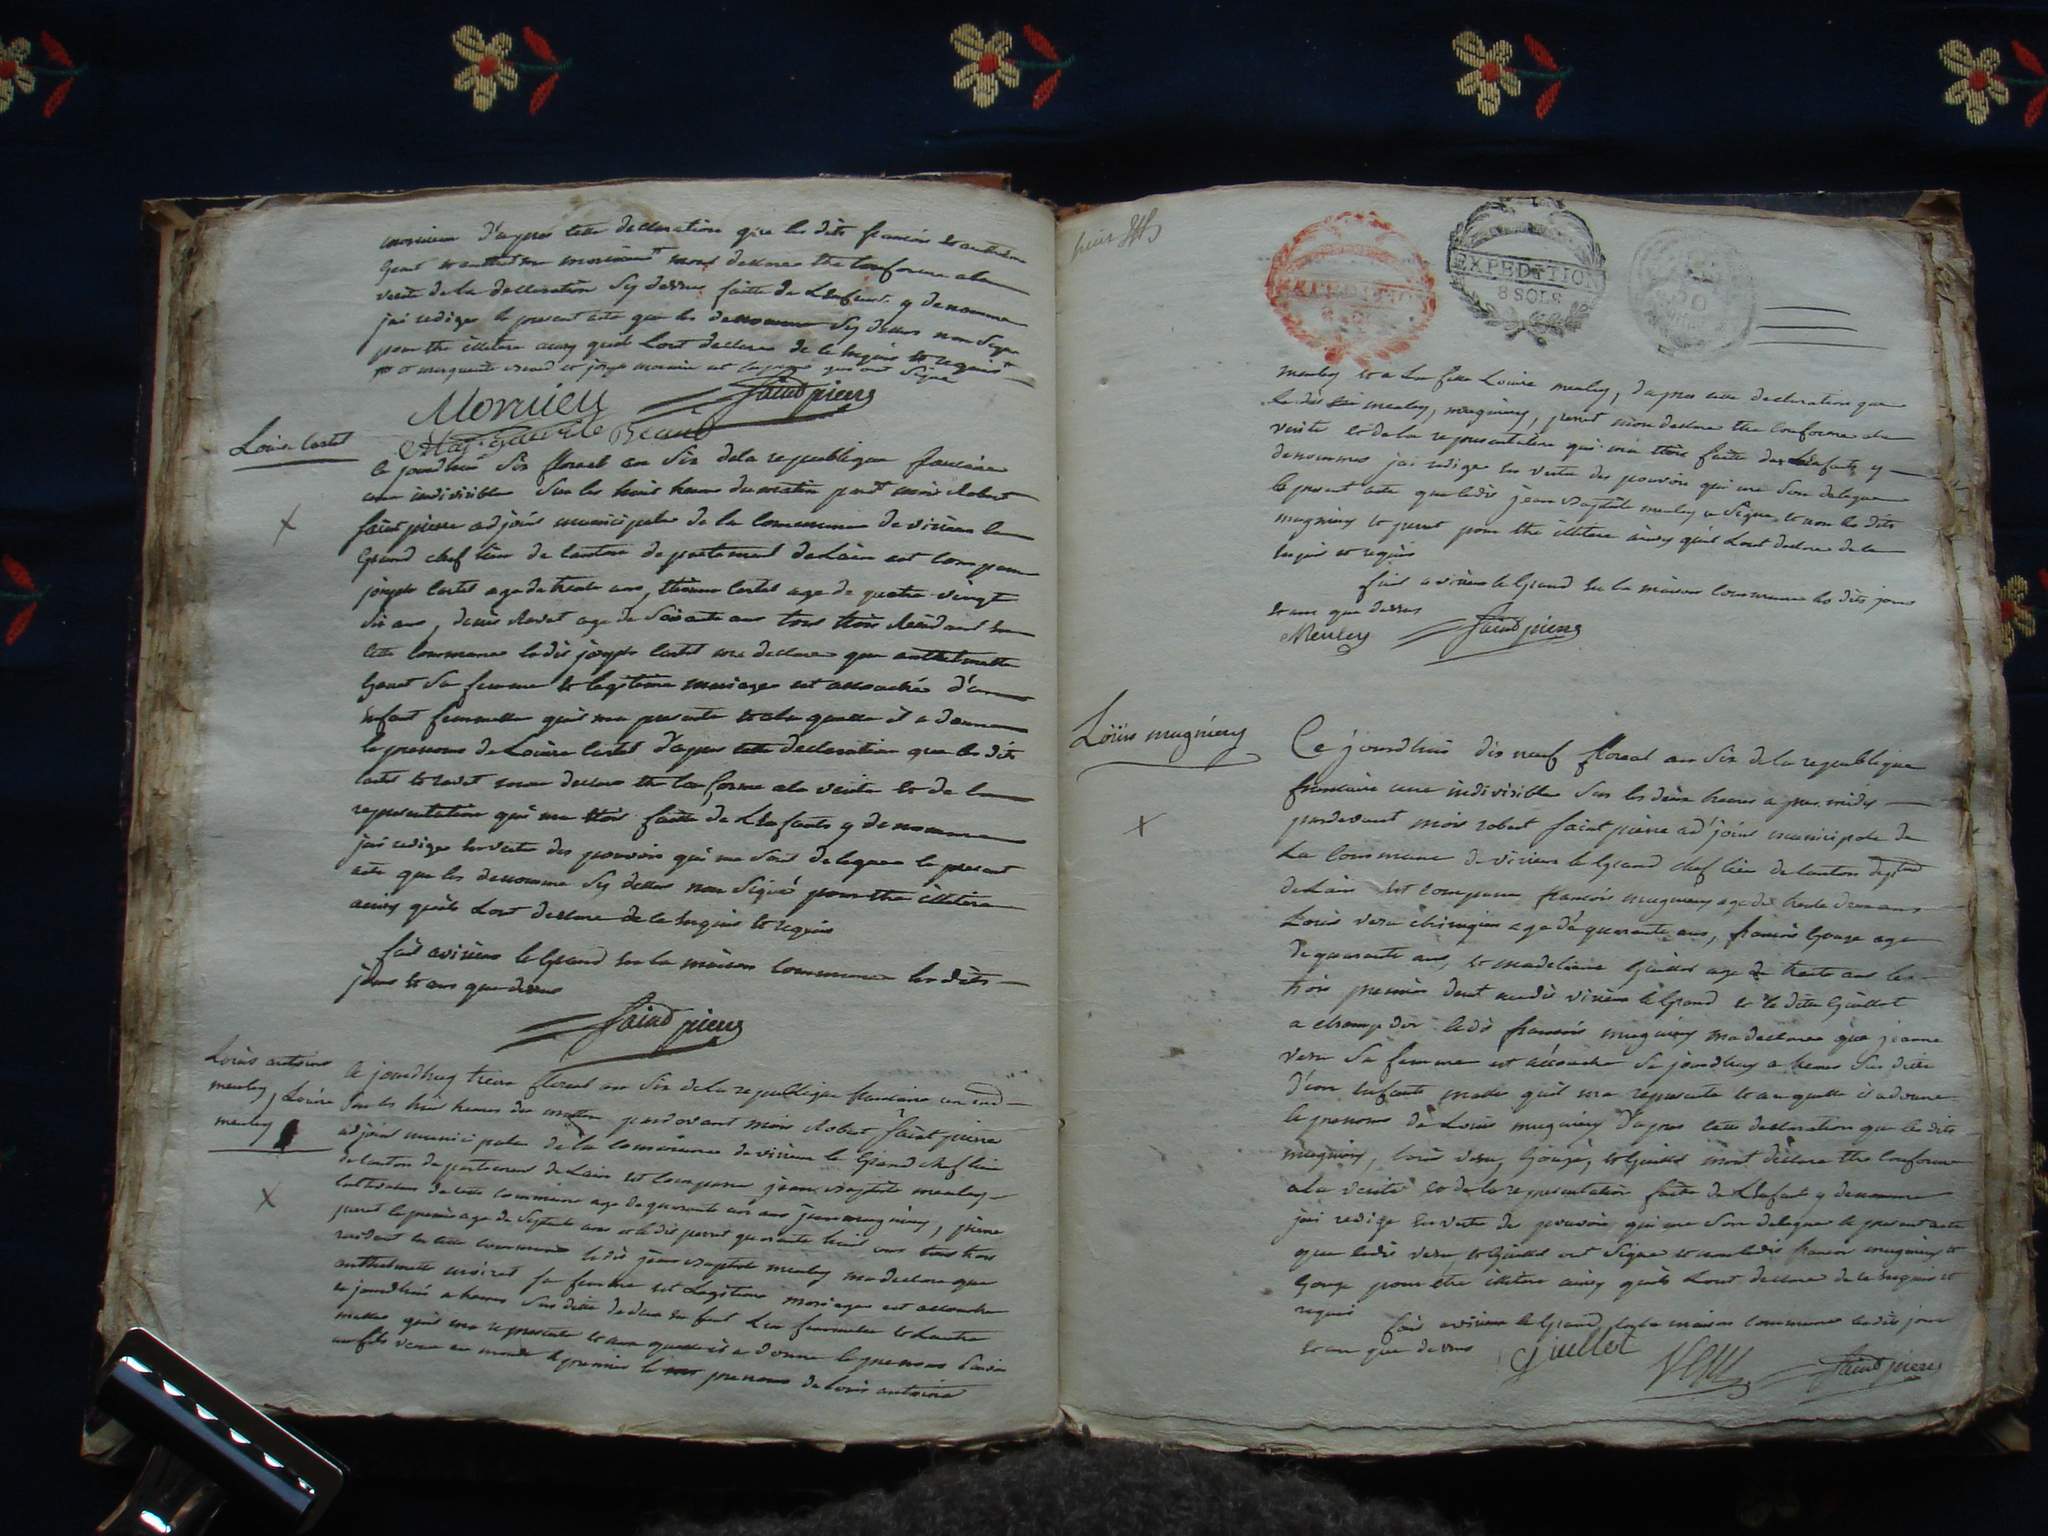 d'apres cette declaration que les dits francois et anthelme
verite de la declaration sy dessus faitte de Lenfant y denomme
jai redige le present acte que les denomme sy dessus non signe
pour etre illetere ainsy quils Lont declare de le enquis et requis
et marguerite et joseph qui ont signe
Saint pierre
Marguerite
Louise Castel
Ce jourdhuis six floreal an six de la republique francaise
une indivisible sur les huit heure du matin part mois Robert
Saint pierre adjoint municipale de la commune de virieu le
Grand chef lieu de canton departement de Lain est comparu
joseph Castel age de trente ans, Castel age de quatre vingt
six ans, denis Ravet age de soixante ans tous trois Residant en
cette commune ledit joseph Castel ma declare que anthelmette
sa femme et legitime mariage est accouche d'un
enfant femmelle quil ma presente et a la quelle il a donne
le prenoms de Louise Castel d'apres cette declaration que les dits
Castel et ravet mon declare etre Conforme a la verite et de la
representation qui ma etois faitte de Lenfants y denomme
jai redige en vertu des pouvoir qui me sont delegue le present
acte que les denomme sy dessus non signe pour etre illetere
ainsy quils Lont declare de le enquis et requis
fait a virieu le Grand en la maison commune les dits
jours et ans que dessus
Saint pierre
Louis antoine
meuley, Louise
meuley
Ce jourdhuy treize floreal an six de la republique francaise une ind
sur les huit heures du matin pardevant mois Robert Saint pierre
adjoint municipale de la commune de virieu le Grand chef lieu
de canton departement de Lain est comparu jean baptiste meuley
cultivateur de cette commune age de quarante six ans jean mugniery, pierre
perret le premie age de septante ans et ledit perret quarante huit ans tous trois
residant en cette commune ledit jean baptiste meuley ma declare que
anthelmette sa femme et Legitime mariage est accouche
ce jourdhuis a heures sus ditte de deux enfant Lun femmelle et Lautre
malle quil ma represente et aux quelle il a donne le prenoms savoir
au fils venu au monde le premier le prenoms de Louis antoine
huit
EXPEDITION
EXPEDITION
8 SOLS
meuley et a La fille Louise meuley, d'apres cette declaration que
le dit meuley, mugniery, perret mon declare etre Conforme a la
verite et de la representation qui ma etois faitte des Lenfants y
denommes jai redige en vertu des pouvoir qui me son delegue
le present acte que ledit jean baptiste meuley a signe et non les dits
mugniery et perret pour etre illetere ainsy quil Lont declare de le
enquis et requis
fait a virieu le Grand en la maison commune les dits jours
et ans que dessus
Meuley Saint pierre
Louis mugniery
Ce jourdhuis dix neuf floreal an six de la republique
francaise une indivisible sur les deux heures apres midy
pardevant mois robert Saint pierre adjoint municipale de
La commune de virieu le Grand chef lieu de canton
de Lain est comparu francois mugniery age de trente deux ans
Louis veru chirurgien age de quarante ans, francois Gouge age
de quarante ans, et madelaine Guillot age de trente ans les
trois premier dud virieu le Grand et la ditte Guillot
a champdor ledit francois mugniery ma declare que jeanne
veru sa femme est accouche ce jourdhuy a heures sus ditte
d'un enfants malle quil ma represente et au quelle il a donne
le prenoms de Louis mugniery d'apres cette declaration que les dits
mugniery, Louis veru, Gouge, et Guillot mont declare etre Conforme
a la verite et de la representation faitte de Lenfant y denomme
jai redige en vertu de pouvoir qui me son delegue le present acte
que ledit veru et Guillot ont signe et non ledit francois mugniery et
Gouge pour etre illetere ainsy quils Lont declare de le enquis et
requis
fait a virieu le Grand en la maison commune ledit jour
et an que dessus
Saint pierre